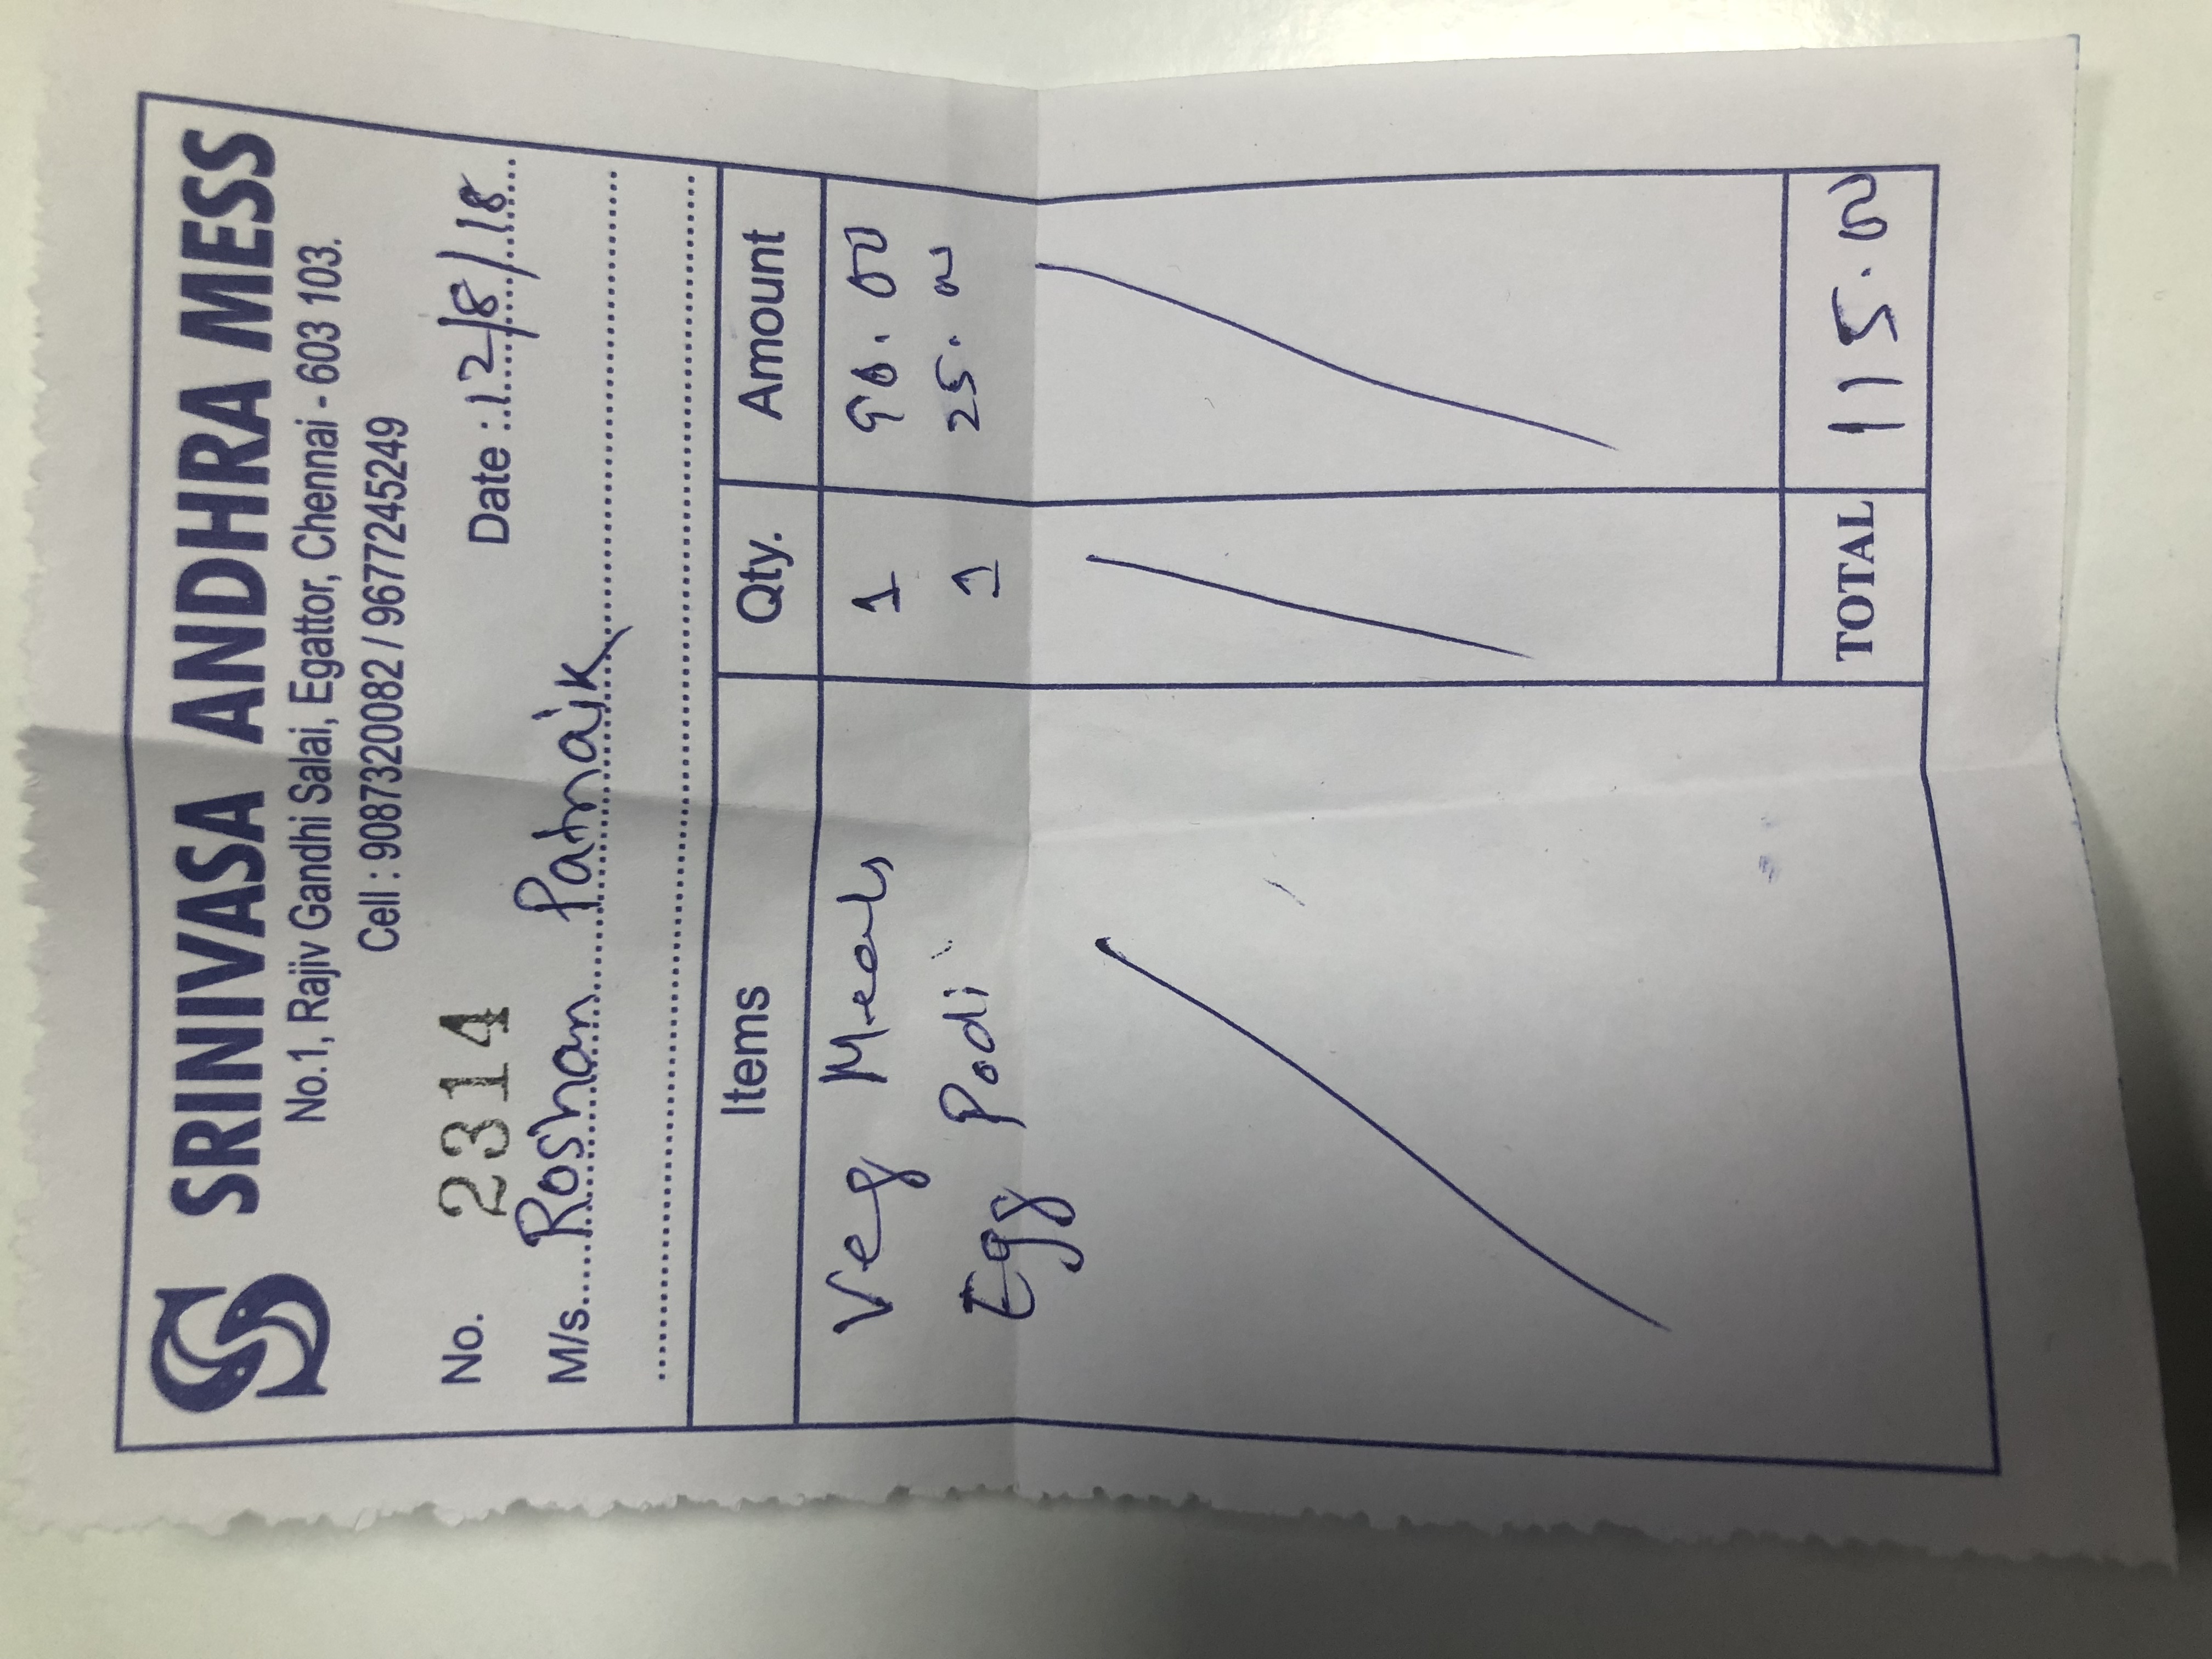 S SRINIVASA ANDHRA MESS
No.1, Rajiv Gandhi Salai, Egattor, Chennai - 603 103.
Cell : 9087320082 / 9677245249
No. 2314 Date : 12/8/18
M/s. Roshan Patnaik
Items Qty. Amount
Veg Meals 1 90.00
Egg Podi 1 25.00
TOTAL 115.00